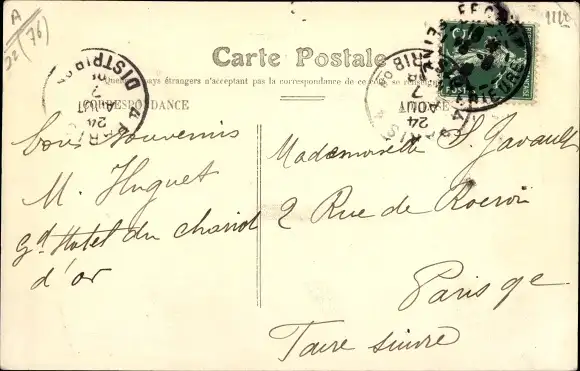 A
52 (76)
1112
Carte Postale
pays étrangers n'acceptant pas la correspondance de ce
CORRESPONDANCE
PARIS
DISTRIB on
7
24
AOUT
PARIS
DISTRIB on
7
24
AOUT
FECAMP
SEINE INFEURE
Bons Souvenirs
M. Huguet
gd Hotel du chariot
d'or
Mademoiselle S. Javault
2 Rue de Rocroi
Paris 9e
Faire suivre